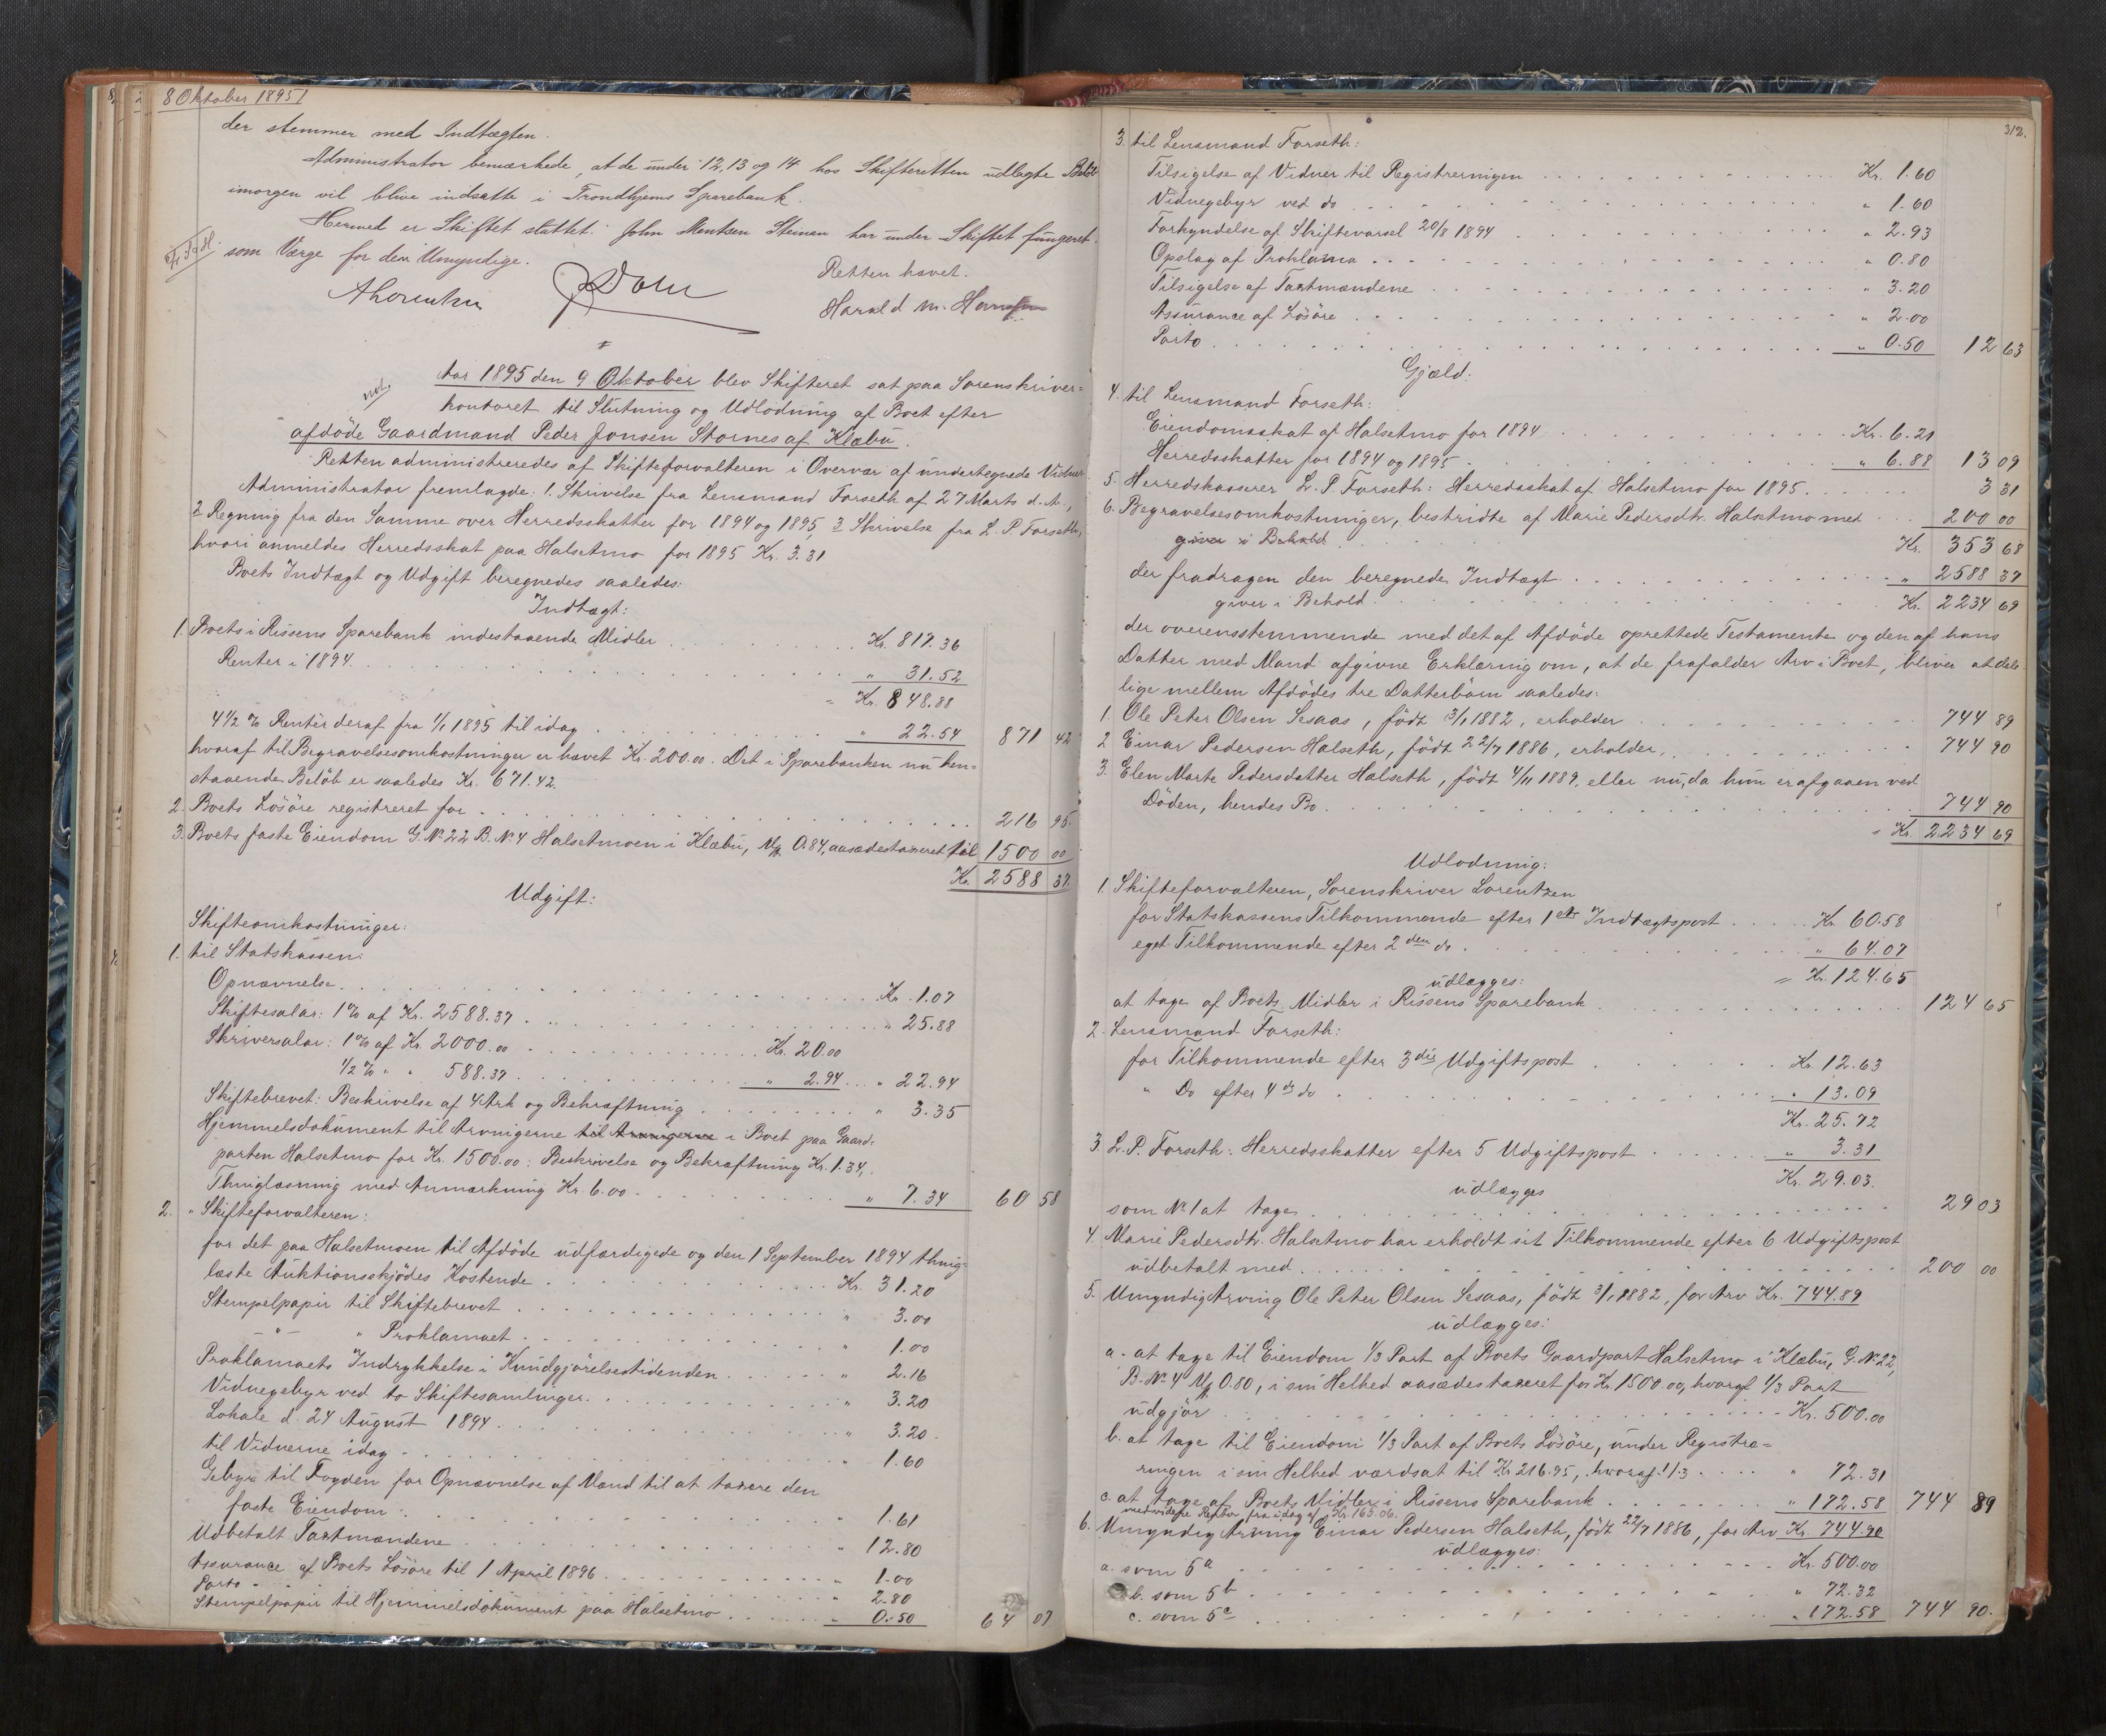 8 Oktober 1895
der stemmer med Indtægten.
Administrator bemærkede, at de under 12, 13 og 14 hos Skifteretten udlagte Beløb
imorgen vil blive indsatte i Trondhjems Sparebank.
Hermed er Skiftet sluttet. John Mentsen Steinan har under Skiftet fungeret
som Værge for den Umyndige.
Retten hævet.
ALorentzen
Harald M. Hansen
not.
Aar 1895 den 9 Oktober blev Skifteret sat paa Sorenskriver=
kontoret til Slutning og Udlodning af Boet efter
afdöde Gaardmand Peder Jonsen Stornes af Klæbu.
Retten administreredes af Skifteforvalteren i Overvær af undertegnede Vidner
Administrator fremlagde: 1. Skrivelse fra Lensmand Forseth af 27 Marts d. A.,
2 Regning fra den Samme over Herredsskatter for 1894 og 1895, 3 Skrivelse fra L. P. Forseth,
hvori anmeldes Herredsskat paa Halsetmo for 1895 Kr. 3.31
Boets Indtægt og Udgift beregnedes saaledes:
Indtægt:
1. Boets i Rissens Sparebank indestaaende Midler Kr. 817.36
Renter i 1894 " 31.52
= Kr. 848.88
4 1/2 % Renter deraf fra 1/1 1895 til idag " 22.54 871 42
hvoraf til Begravelsesomkostninger er hævet Kr. 200.00. Det i Sparebanken nu hen=
staaende Beløb er saaledes Kr. 671.42.
2. Boets Lösöre registreret for 216 95.
3. Boets faste Eiendom G. No 22 B. No 4 Halsetmoen i Klæbu, My 0.84, aasædestaxeret til 1500 00
Kr. 2588 37.
Udgift:
Skifteomkostninger:
1. til Statskassen:
Opnævnelse Kr. 1.07
Skiftesalær: 1 % af Kr. 2588.37 " 25.88
Skriversalær: 1 % af Kr. 2000.00 Kr. 20.00
1/2 % " " 588.37 " 2.94 " 22.94
Skiftebrevet: Beskrivelse af 4 Ark og Bekræftning " 3.35
Hjemmelsdokument til Arvingerne til Arvingerne i Boet paa Gaard-
parten Halsetmo for Kr. 1500.00: Beskrivelse og Bekræftning Kr. 1.34,
Thinglæsning med Anmærkning Kr. 6.00 " 7.34 60 58
2. " Skifteforvalteren:
for det paa Halsetmoen til Afdöde udfærdigede og den 1 September 1894 thing=
læste Auktionsskjödes Kostende Kr. 31.20
Stempelpapir til Skiftebrevet " 3.00
—"— " Proklamaet " 1.00
Proklamaets Indrykkelse i Kundgjörelsestidenden " 2.16
Vidnegebyr ved to Skiftesamlinger " 3.20
Lokale d. 24 August 1894 " 3.20
til Vidnerne idag " 1.60
Gebyr til Fogden for Opnævnelse af Mænd til at taxere den
faste Eiendom " 1.61
Udbetalt Taxtmændene " 12.80
Assurance af Boets Lösöre til 1 April 1896 " 1.00
Porto " 2.80
Stempelpapir til Hjemmelsdokument paa Halsetmo " 0.50 64 07
312.
3. til Lensmand Forseth:
Tilsigelse af Vidner til Registreringen Kr. 1.60
Vidnegebyr ved do " 1.60
Forkyndelse af Skiftevarsel 20/8 1894 " 2.93
Opslag af Proklama " 0.80
Tilsigelse af Taxtmændene " 3.20
Assurance af Lösöre " 2.00
Porto " 0.50 12 63
Gjæld:
4. til Lensmand Forseth:
Eiendomsskat af Halsetmo for 1894 Kr. 6.21
Herredsskatter for 1894 og 1895 " 6.88 13 09
5. Herredskasserer L. P. Forseth: Herredsskat af Halsetmo for 1895 3 31
6. Begravelsesomkostninger, bestridte af Marie Pedersdtr. Halsetmo med 200 00
giver i Behold Kr. 353 68
der fradragen den beregnede Indtægt " 2588 37
giver i Behold Kr. 2234 69
der overensstemmende med det af Afdöde oprettede Testamente og den af hans
Datter med Mand afgivne Erklæring om, at de frafalder Arv i Boet, bliver at dele
lige mellem Afdödes tre Datterbörn saaledes:
1. Ole Peter Olsen Sesaas, födt 3/1 1882, erholder 744 89
2 Einar Pedersen Halseth, födt 22/7 1886, erholder 744 90
3. Elen Marte Pedersdatter Halseth, födt 4/11 1889, eller nu, da hun er afgaaen ved
Döden, hendes Bo 744 90
= Kr. 2234 69
Udlodning:
1. Skifteforvalteren, Sorenskriver Lorentzen
for Statskassens Tilkommende efter 1ste Indtægtspost Kr. 60.58
eget Tilkommende efter 2den do " 64.07
= Kr. 124.65
udlægges:
at tage af Boets Midler i Rissens Sparebank 124 65
2. Lensmand Forseth:
for Tilkommende efter 3die Udgiftspost Kr. 12.63
" Do efter 4de do " 13.09
Kr. 25.72
3 L. P. Forseth: Herredsskatter efter 5 Udgiftspost " 3.31
Kr. 29.03.
udlægges
som No 1 at tage 29 03
4. Marie Pedersdtr. Halsetmo har erholdt sit Tilkommende efter 6 Udgiftspost
udbetalt med 200 00
5. Umyndig Arving Ole Peter Olsen Sesaas, födt 3/1 1882, for Arv Kr. 744.89
udlægges:
a. at tage til Eiendom 1/3 Part af Boets Gaardpart Halsetmo i Klæbu, G. No 22,
B. No 4 My 0.80, i sin Helhed aasædestaxeret for Kr. 1500.00, hvoraf 1/3 Part
udgjör Kr. 500.00
b. at tage til Eiendom 1/3 Part af Boets Lösöre, under Registre=
ringen i sin Helhed værdsat til Kr. 216.95, hvoraf 1/3 " 72.31
c. at tage af Boets Midler i Rissens Sparebank " 172.58 744 89
med videre Renter fra idag af Kr. 165.06.
6. Umyndig Arving Einar Pedersen Halseth, födt 22/7 1886, for Arv Kr. 744.90
udlægges:
a. som 5a Kr. 500.00
b. som 5b " 72.32
c. som 5c " 172.58 744 90.